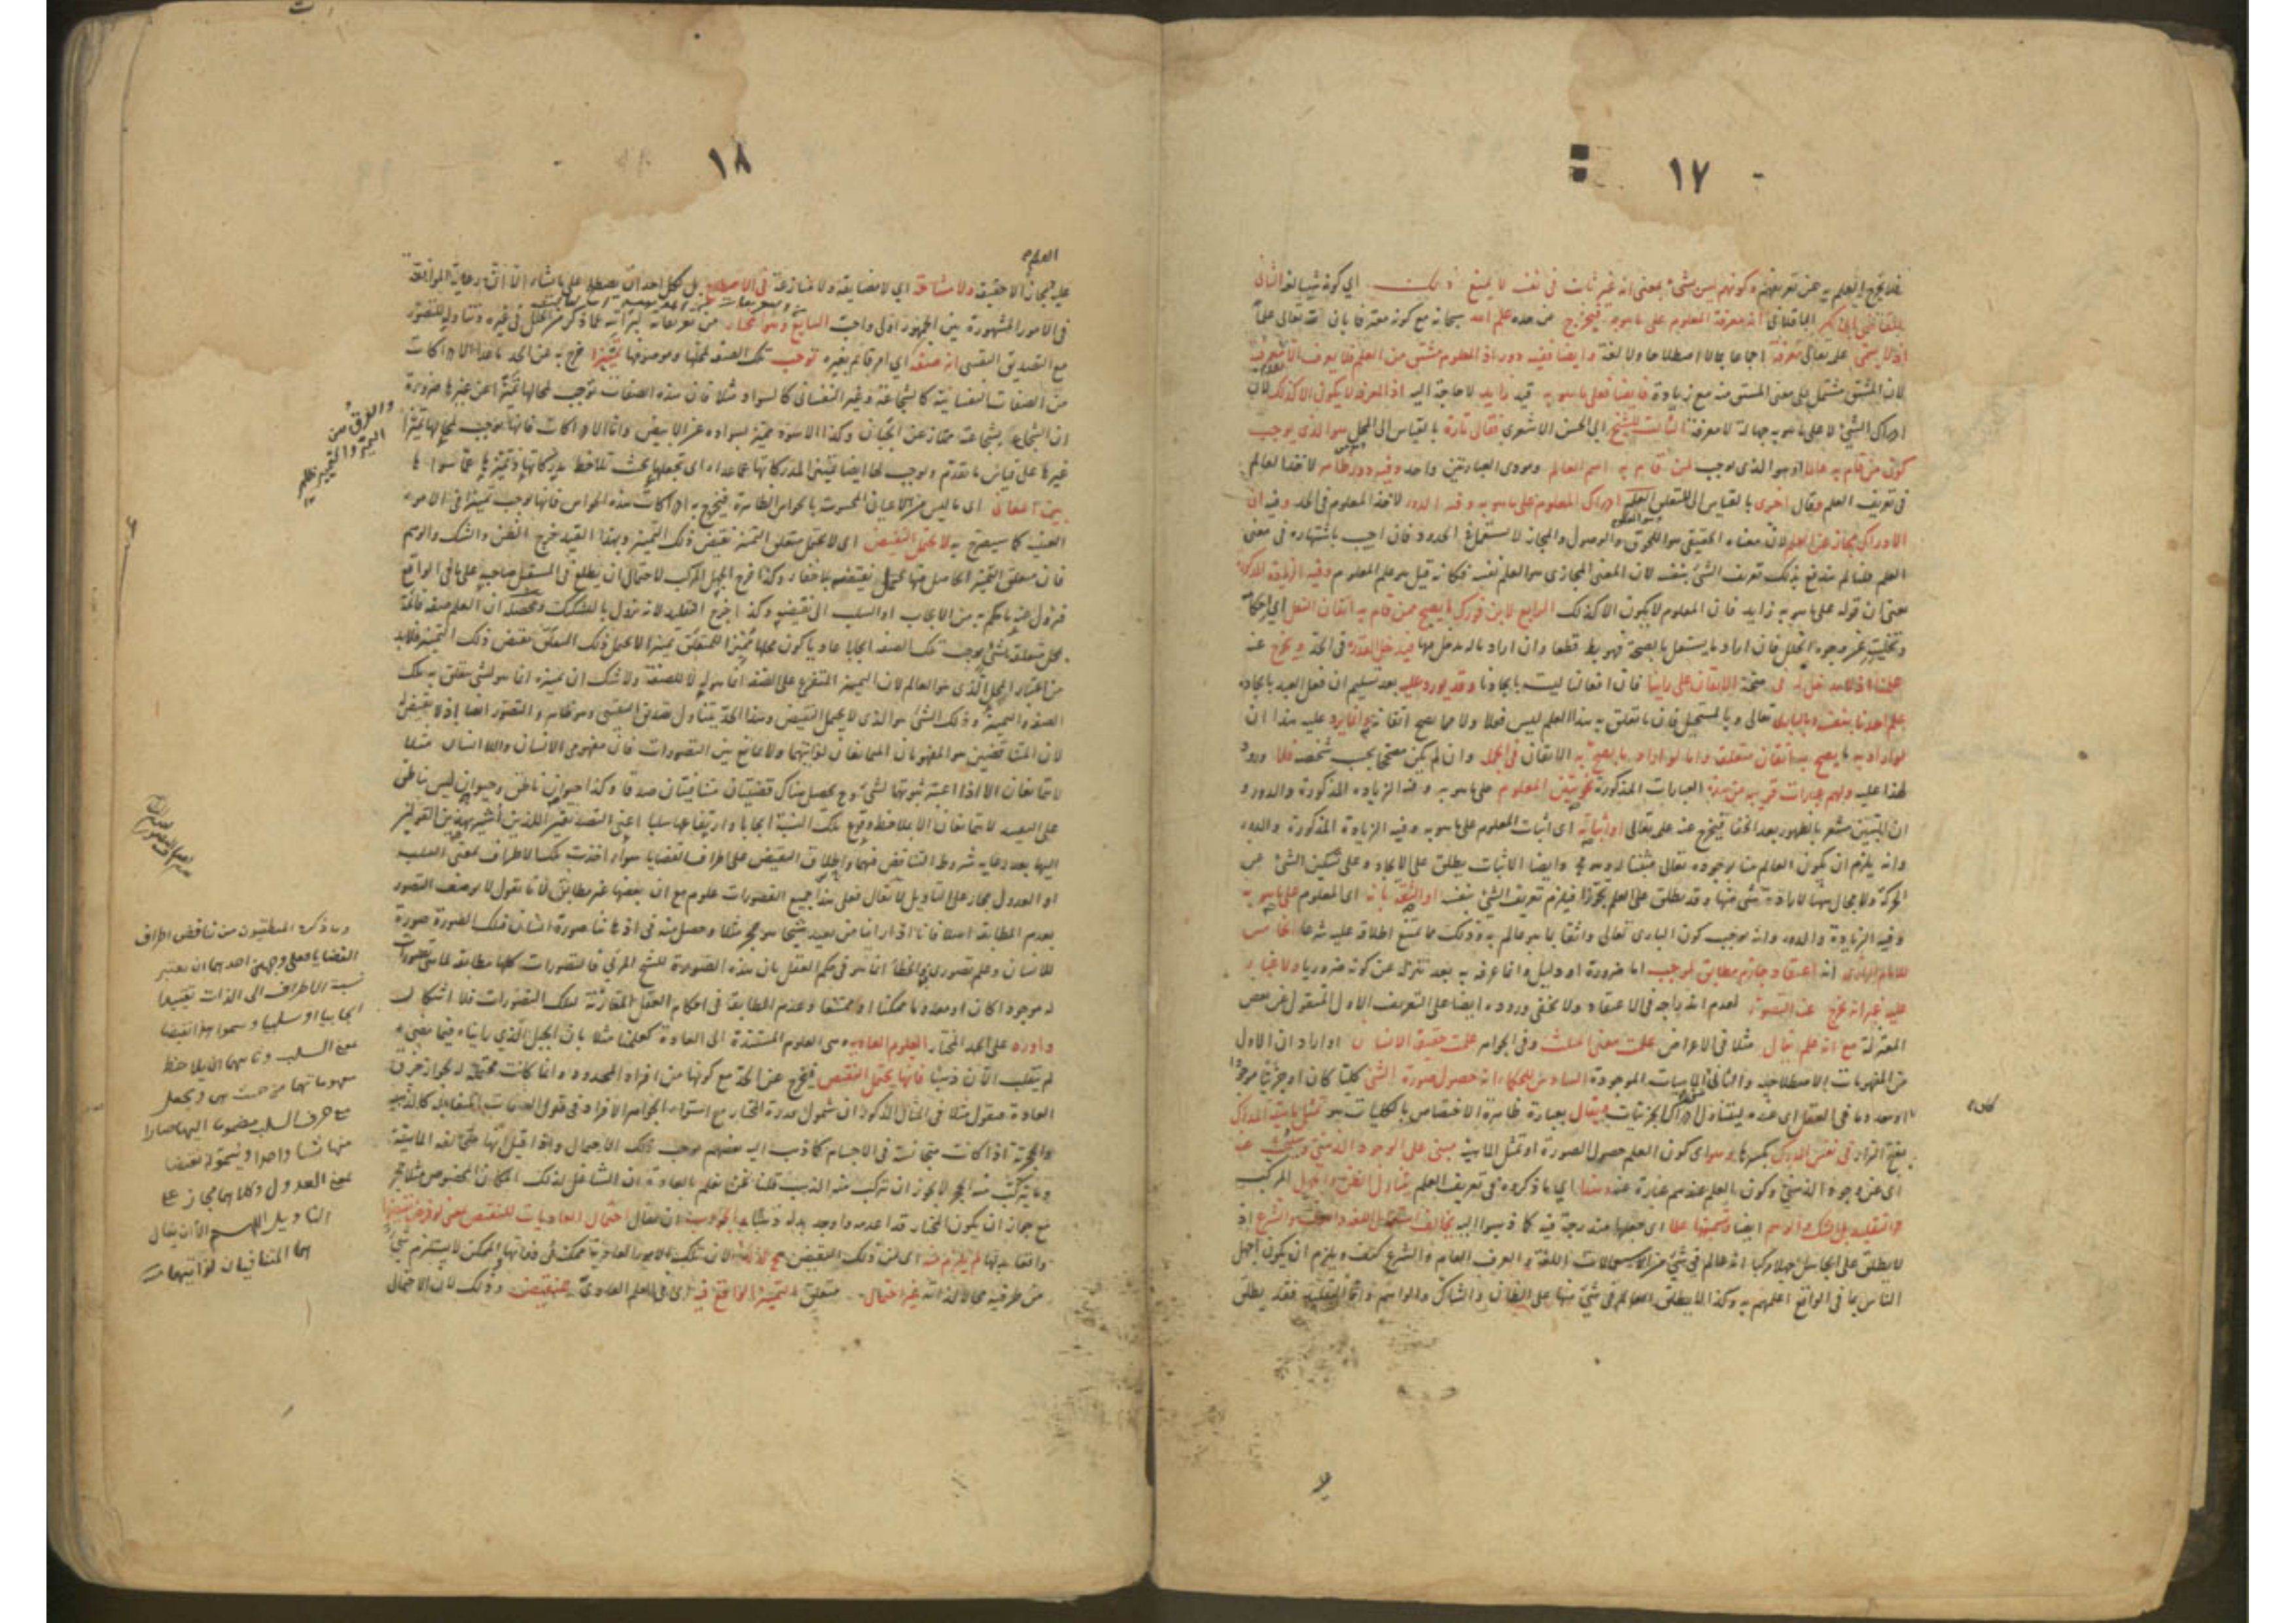 ١٧
فلا يخرج العلم به عن تعريفهم وكونهم ليس بشيء بمعنى انه غير ثابت في نفسه لا يمنع ذلك اي كونه شيئا لغة الثاني
للقاضي ابي بكر الباقلاني انه معرفة المعلوم على ما هو به فيخرج عن حده علم الله سبحانه مع كونه معترفا بان لله تعالى علما
اذ لا يسمى علمه تعالى معرفة اجماعا لا اصطلاحا ولا لغة وايضا ففيه دور اذ المعلوم مشتق من العلم فلا يعرف الا بمعرفته
لان المشتق مشتمل على معنى المشتق منه مع زيادة وايضا فعلى ما هو به قيد زايد لا حاجة اليه اذ المعرفة لا يكون الا كذلك لان
ادراك الشيء لا على ما هو به جهالة لا معرفة الثالث للشيخ ابي الحسن الاشعري فقال تارة بالقياس الى المحل هو الذي يوجب
كون من قام به عالما او هو الذي يوجب لمن قام به اسم العالم ومودى العبارتين واحد وفيه دور ظاهر لاخذ العالم
في تعريف العلم وقال اخرى بالقياس الى المتعلق العلم ادراك المعلوم على ما هو به وفيه الدور لاخذ المعلوم في الحد وفيه ان
الادراك مجاز عن العلم لان معناه الحقيقي هو اللحوق والوصول والمجاز لا يستعمل في الحدود فان اجيب باشتهاره في معنى
العلم قلنا لم يندفع بذلك تعريف الشيء بنفسه لان المعنى المجازي هو العلم نفسه فكانه قيل هو علم المعلوم وفيه الزيادة المذكورة
يعني ان قوله على ما هو به زايد فان المعلوم لا يكون الا كذلك الرابع لابن فورك ما يصح ممن قام به اتقان الفعل اي احكامه
وتخليته عن وجوه الخلل فان اراد ما يستقل بالصحة فهو بط قطعا وان اراد ما له مدخل فيها فيدخل القدرة في الحد ويخرج عنه
علمنا اذ لا مدخل له في صحة الاتقان على راينا فان افعالنا ليست بايجادنا وقد يورد عليه بعد تسليم ان فعل العبد بايجاده
علم احدنا بنفسه وبالباري تعالى وبالمستحيل فان ما تعلق به هذا العلم ليس فعلا ولا مما يصح اتقانه وانما يرد عليه هذا ان
لو اراد به ما يصح به اتقان متعلقه واما لو اراد ما يصح به الاتقان في الجملة وان لم يكن مصححا بحسب شخصه فلا ورود
لهذا عليه ولهم عبارات قريبة من هذه العبارات المذكورة نحو تبين المعلوم على ما هو به وفيه الزيادة المذكورة والدور و
ان التبين مشعر بالظهور بعد الخفا فيخرج عنه علمه تعالى او اثباته اي اثبات المعلوم على ما هو به وفيه الزيادة المذكورة والدور
وانه يلزم ان يكون العالم منا بوجوده تعالى مثبتا له وهو مح وايضا الاثبات يطلق على الايجاد وعلى تسكين الشيء عن
الحركة ولا مجال ههنا لارادة شيء منهما وقد يطلق على العلم تجوزا فيلزم تعريف الشيء بنفسه او الثقة بانه اي المعلوم على ما هو به
وفيه الزيادة والدور وانه موجب كون الباري تعالى واثقا بما هو عالم به وذلك مما يمتنع اطلاقه عليه شرعا الخامس
للامام الرازي انه اعتقاد جازم مطابق لموجب اما ضرورة او دليل وانما عرفه به بعد تنزله عن كونه ضروريا ولا غبار
عليه غير انه يخرج عنه التصور لعدم اندراجه في الاعتقاد ولا يخفى وروده ايضا على التعريف الاول المنقول عن بعض
المعتزلة مع انه علم يقال مثلا في الاعراض علمت معنى المثلث وفي الجواهر علمت حقيقة الانسان او اراد ان الاول
من المفهومات الاصطلاحية والثاني الماهيات الموجودة السادس للحكماء انه حصول صورة الشيء كليا كان او جزئيا موجودا
او معدوما في العقل اي عنده ليتناول ادراك الجزئيات ويقال بعبارة ظاهرة الاختصاص بالكليات هو تمثل ماهية المدرك
بفتح الراء في نفس المدرك بكسرها وهو اي كون العلم حصول الصورة او تمثل الماهية مبني على الوجود الذهني وسنبحث عنه
اي عن وجود الذهني وكون العلم عندهم عبارة عنه وهذا اي ما ذكروه في تعريف العلم يتناول الظن والجهل المركب
والتقليد بل الشك والوهم ايضا وتسميتها علما اي جعلها مندرجة فيه كما ذهبوا اليه يخالف استعمال اللغة والعرف والشرع اذ
لا يطلق على الجاهل جهلا مركبا انه عالم في شيء من استعمالات اللغة والعرف العام والشرع كيف ويلزم ان يكون اجهل
الناس بما في الواقع اعلمهم به وكذا لا يطلق العالم في شيء منها على الظان والشاك والواهم واما التقليد فقد يطلق
١٨
العلم
عليه مجازا لا حقيقة ولا مشاحة اي لا مضايقة ولا منازعة في الاصطلاح بل لكل احد ان يصطلح على ما شاء الا ان رعاية الموافقة
في الامور المشهورة بين الجمهور اولى واحب السابع وهو المختار من تعريفاته لبراءته عما ذكر من الخلل في غيره وتناوله للتصور
مع التصديق اليقيني انه صفة اي امر قائم بغيره توجب تلك الصفة لمحلها وموصوفها تمييزا خرج به عن الحد ما عدا الادراكات
من الصفات النفسانية كالشجاعة وغير النفساني كالسواد مثلا فان هذه الصفات توجب لمحالها تميزا عن غيرها ضرورة
ان الشجاع بشجاعته ممتاز عن الجبان وكذا الاسود متميز بسواده عن الابيض واما الادراكات فانها توجب لمحالها تميزا
غيرها على قياس ما تقدم وتوجب لها ايضا تمييز المدركاتها عما عداها اي تجعلها بحيث تلاحظ مدركاتها وتميزها عما سواها
بين المعاني اي ما ليس من الاعيان المحسوسة بالحواس الظاهرة فيخرج به ادراكات هذه الحواس فانها توجب تمييزا في الامور
العينية كما سيصرح به لا يحتمل النقيض اي لا يحتمل متعلق التمييز نقيض ذلك التمييز وبهذا القيد خرج الظن والشك والوهم
فان متعلق التمييز الحاصل فيها يحتمل نقيضه بلا خفاء وكذا خرج الجهل المركب لاحتمال ان يطلع في المستقبل صاحبه على ما في الواقع
فيزول عنه ما حكم به من الايجاب او السلب الى نقيضه وكذا اخرج التقليد لانه يزول بالتشكيك ومحصله ان العلم صفة قائمة
بمحل متعلقة بشيء يوجب تلك الصفة ايجابا عاديا كون محلها مميزا للمتعلق تمييزا لا يحتمل ذلك المتعلق نقيض ذلك التمييز فلا بد
من اعتبار المحل الذي هو العالم لان التمييز المتفرع على الصفة انما هو له لا للصفة ولا شك ان تمييزه انما هو لشيء متعلق به تلك
الصفة والتمييز وذلك الشيء هو الذي لا يحتمل النقيض وهذا الحد يتناول تصديق اليقيني وهو ظاهر والتصور ايضا اذ لا نقيض له
لان المتناقضين هما المفهومان المتمانعان لذاتيهما ولا تمانع بين التصورات فان مفهومي الانسان واللا انسان مثلا
لا يتمانعان الا اذا اعتبر ثبوتهما لشيء وح يحصل هناك قضيتان متنافيتان صدقا وكذا حيوان ناطق وحيوان ليس بناطق
على التقييد لا يتمانعان الا بملاحظة وقوع تلك النسبة ايجابا وارتفاعها سلبا اعني التصديقين اللذين اشير بهذين القولين
اليهما بعد رعاية شروط التناقض فيهما واطلاق النقيض على اطراف القضايا سواء اخذت تلك الاطراف بمعنى السلب
او العدول مجاز على التاويل لا يقال فعلى هذا جميع التصورات علوم مع ان بعضها غير مطابق لانا نقول لا يوصف التصور
بعدم المطابقة اصلا فانا اذا راينا من بعيد شبحا هو حجر مثلا وحصل منه في اذهاننا صورة انسان فتلك الصورة صورة
للانسان وعلم تصوري والخطا انما هو في حكم العقل بان هذه الصورة للشبح المرئي فالتصورات كلها مطابقة لما هي تصورات
له موجودا كان او معدوما ممكنا او ممتنعا وعدم المطابقة في احكام العقل المقارنة لتلك التصورات فلا اشكال
واورد على الحد المختار العلوم العادية وهي العلوم المستندة الى العادة كعلمنا مثلا بان الجبل الذي رايناه فيما مضى
لم ينقلب الان ذهبا فانها يحتمل النقيض فيخرج عن الحد مع كونها من افراد المحدود وانما كانت محتملة له لجواز خرق
العادة فنقول مثلا في المثال المذكور ان شمول قدرة المختار مع استواء الجواهر الافراد في قبول الصفات المتقابلة كالذهبية
والحجرية اذا كانت متجانسة في الاجسام كما ذهب اليه بعضهم يوجب ذلك الاحتمال واذا قيل انها مختلفة الماهية
وما يتركب منه الحجر لا يجوز ان يتركب منه الذهب قلنا نحن نعلم بالعادة ان الشاغل لذلك المكان المخصوص مثلا حجر
مع جواز ان يكون المختار قد اعدمه واوجد بدله ذهبا والجواب ان يقال احتمال العاديات للنقيض بمعنى لو فرض نقيضها
واقعا بدلها لم يلزم منه اي من ذلك النقيض مح لذاته لان تلك الامور العادية ممكنة في ذواتها والممكن لا يستلزم شيء
من طرفيه محالا لذاته غير احتمال متعلق التمييز الواقع فيه اي في العلم العادي نقيضه وذلك لان الاحتمال
والفرق بين
وما ذكره المنطقيون من تناقض اطراف
القضايا فعلى وجهين احدهما ان يعتبر
نسبة الاطراف الى الذات تقييدا
ايجابيا او سلبيا وسموا هذا نقيضا
بمعنى السلب وثانيهما ان يلاحظ
مفهوماتها من حيث هي ويجعل
مع حرف السلب مضموما اليها فصارا
شيئا واحدا ويسمونه نقيضا
بمعنى العدول وكلاهما مجاز على
التاويل اللهم الا ان يقال
هما المتنافيان لذاتيهما